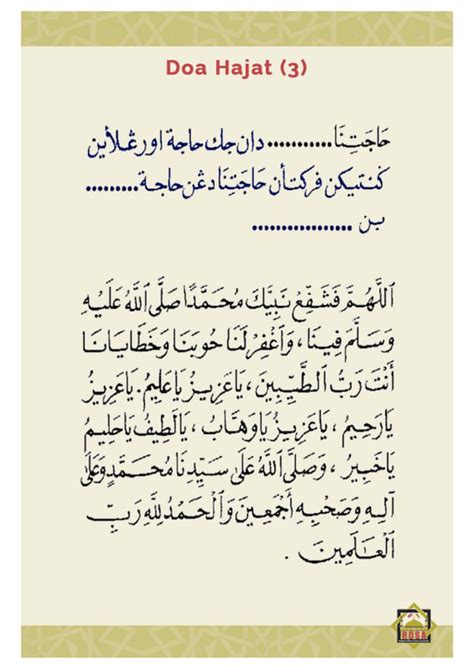 Doa Hajat (3)
حَاجَتِنَا........... دان جك حاجة اورڠ لأين
كنتيكن فركتأن حَاجَتِنَا دڠن حاجة.........
بن .................
اَللّٰهُمَّ فَشَفِّعْ نَبِيَّكَ مُحَمَّدًا صَلَّى اللهُ عَلَيْهِ
وَسَلَّمَ فِينَا، وَاغْفِرْ لَنَا حُوبَنَا وَخَطَايَانَا
أَنْتَ رَبُّ الطَّيِّبِينَ، يَاعَزِيزُ يَاعَلِيمُ. يَاعَزِيزُ
يَارَحِيمُ، يَاعَزِيزُ يَاوَهَّابُ، يَالَطِيفُ يَاحَلِيمُ
يَاخَبِيرُ، وَصَلَّى اللهُ عَلَى سَيِّدِنَا مُحَمَّدٍ وَعَلَى
آلِهِ وَصَحْبِهِ أَجْمَعِينَ وَالْحَمْدُ لِلّٰهِ رَبِّ
الْعَالَمِينَ .
ROSA